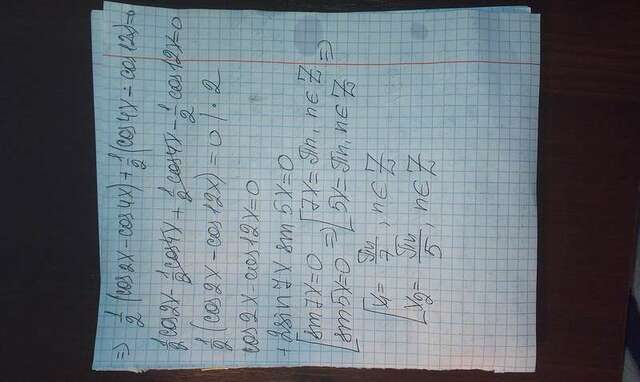 ⇒ 1/2 (cos 2x - cos 4x) + 1/2 (cos 4x - cos 12x) = 0
1/2 cos 2x - 1/2 cos 4x + 1/2 cos 4x - 1/2 cos 12x = 0
1/2 (cos 2x - cos 12x) = 0 | · 2
cos 2x - cos 12x = 0
+2 sin 7x sin 5x = 0
[ sin 7x = 0 ⇒ [ 7x = πn, n ∈ Z
[ sin 5x = 0 ⇒ [ 5x = πn, n ∈ Z ⇒
[ x₁ = πn/7, n ∈ Z
[ x₂ = πn/5, n ∈ Z